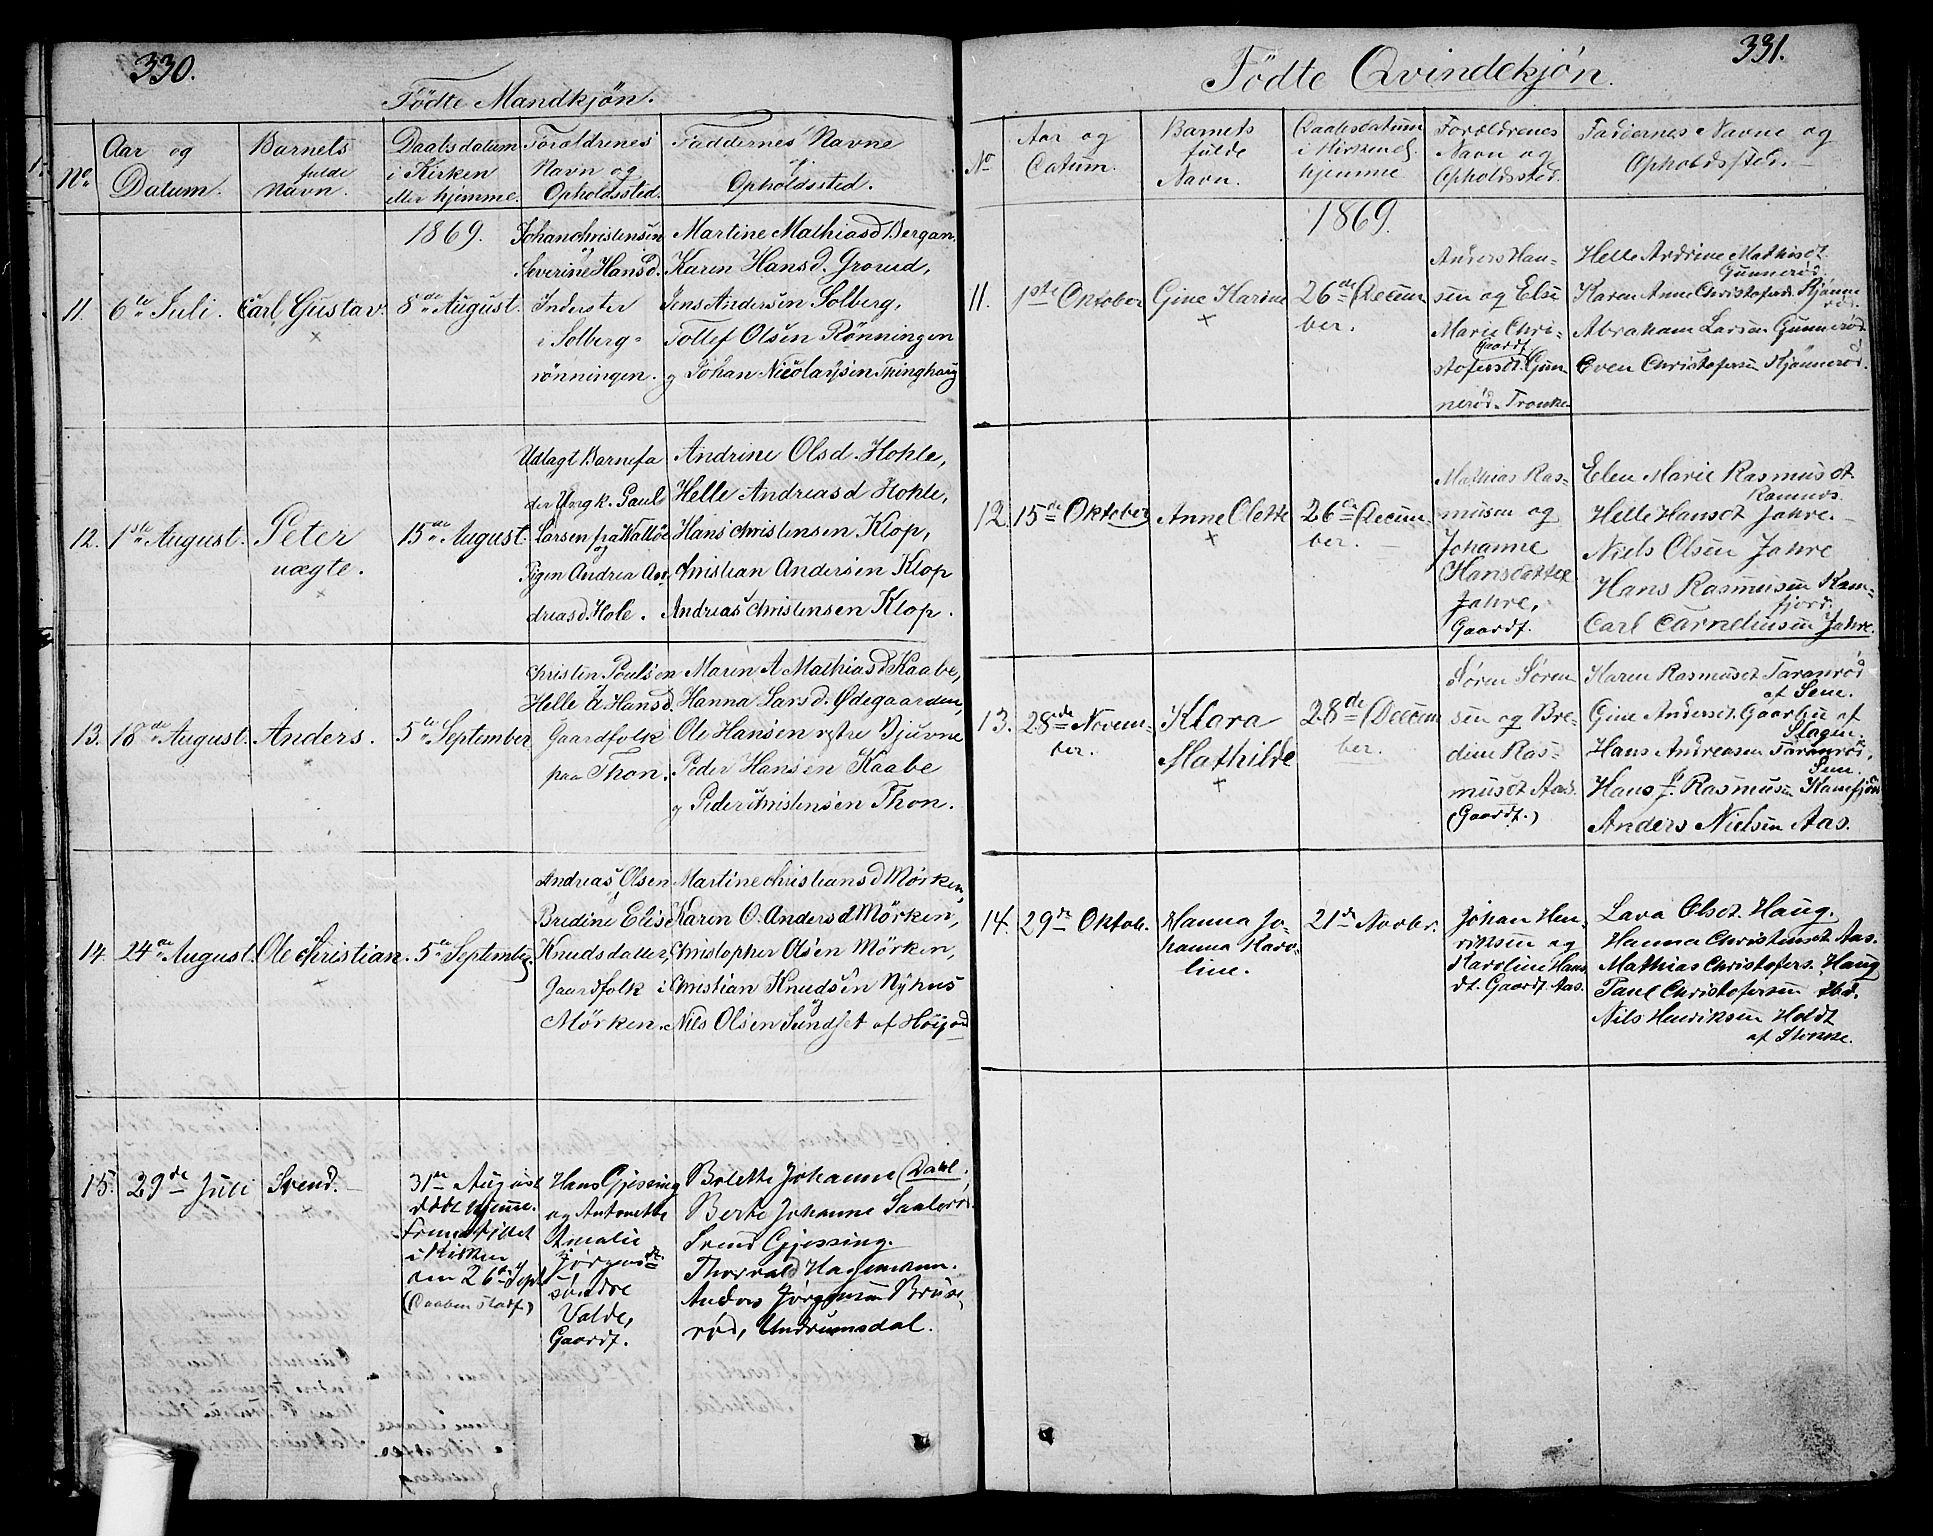 330.
Födte Mandkjön.
No.
Aar og
Datum.
Barnets
fulde
Navn.
Daabsdatum
i Kirken
eller hjemme.
Foræeldrenes
Navn og
Opholdssted.
Faddernes Navne
og
Opholdssted.
1869.
11.
6te Juli.
Carl Gustav.
8de August.
Johan Christensen
og
Severine Hansd.
Inderster
i Solberg-
rönningen.
Martine Mathiasd Bergan,
Karen Hansd. Grorud,
Jens Andersen Solberg,
Tollef Olsen Rönningen
og Johan Nicolaysen Thinghaug
12.
1ste August.
Peter
uægte.
15de August.
Udlagt Barnefa
der Ungk. Paul
Larsen fra
og
Pigen Andrea An
dreasd. Hole.
Andrine Olsd. Hohle,
Helle Andreasd Hohle,
Hans Christensen Klop,
Christian Andersen Klop
Andreas Christensen Klop.
13.
18de August.
Anders.
5te September
Christen Poulsen
Helle A. Hansd.
Gaardfolk
paa Thon.
Maren A Mathiasd Kaabe,
Hanna Larsd. Ødegaarden,
Ole Hansen vestre Bjuvne
Peder Hansen Kaabe
og Peder Christensen Thon.
14.
24de August.
Ole Christian.
5te September
Andreas Olsen
og
Bredine Elise
Knudsdatter,
Gaardfolk i
Mørken.
Martine Christiansd Mørken,
Karen O. Andersd Mørken,
Christopher Olsen Mørken,
Christian Knudsen Nyhus
og
Nils Olsen Sundset af Høijord
15.
29de Juli
Svend.
31te August
døbt hjemme.
Fremstillet
i Kirken
den 26de Sept.
(Daaben stadf.)
Hans Gjessing
og Antonette
Amalie
Jørgensdt.
søndre
Valde,
Gaardf.
Bolette Johanne Dahl,
Berte Johanne Saaterød.
Svend Gjessing.
Thorvald Hagemann.
Anders Jørgensen Bruse-
rød, Undrumsdal.
331.
Födte Qvindekjön.
No
Aar og
Datum.
Barnets
fulde
Navn.
Daabsdatum
i Kirken el.
hjemme
Forældrenes
Navn og
Opholdssted.
Faddernes Navne og
Opholdssted.
1869.
11.
1ste Oktober
Gine Karine
26de Decem-
ber.
Anders Han-
sen og Else
Marie Chri-
Gaardf.
stofersdt. Gun
nerød.
Helle Andrine Mathisdt.
Gunnerød.
Karen Anne Christofersdt. Kjønne
rød.
Abraham Larsen Gunnerød.
Even Christofersen Kjønnerød.
12.
15de Oktober
Anne Olette
26de Decem-
ber.
Mathias Ras-
musen og
Johanne
Hansdatter
Jahre,
Gaardf.
Elen Marie Rasmusdt.
Ramnes.
Helle Hansdt Jahre.
Niels Olsen Jahre
Hans Rasmusen Kam-
fjord.
Carl Corneliusen Jahre.
13.
28de Novem-
ber.
Klara
Mathilde
28de Decem
ber.
Søren Søren
sen og Bre-
dine Ras-
musdt Aas.
(Gaardf.)
Karen Rasmusdt Taranrød
af Sem.
Gine Andersdt. Gaarbu af
Slagen.
Hans Andreasen Taranrød,
Sem.
Hans J. Rasmusen Kamfjord
Anders Nielsen Aas.
14.
29de Oktob.
Hanna Jo-
hanna Karo-
line.
21de Novbr.
Johan Hen
riksen og
Karoline Hans
dt. Gaardf. Aas.
Lava Olsdt. Haug.
Hanna Christensdt Aas.
Mathias Christofers. Haug
Paul Christofersen ibd.
Nils Henriksen Holdt
af Stokke.